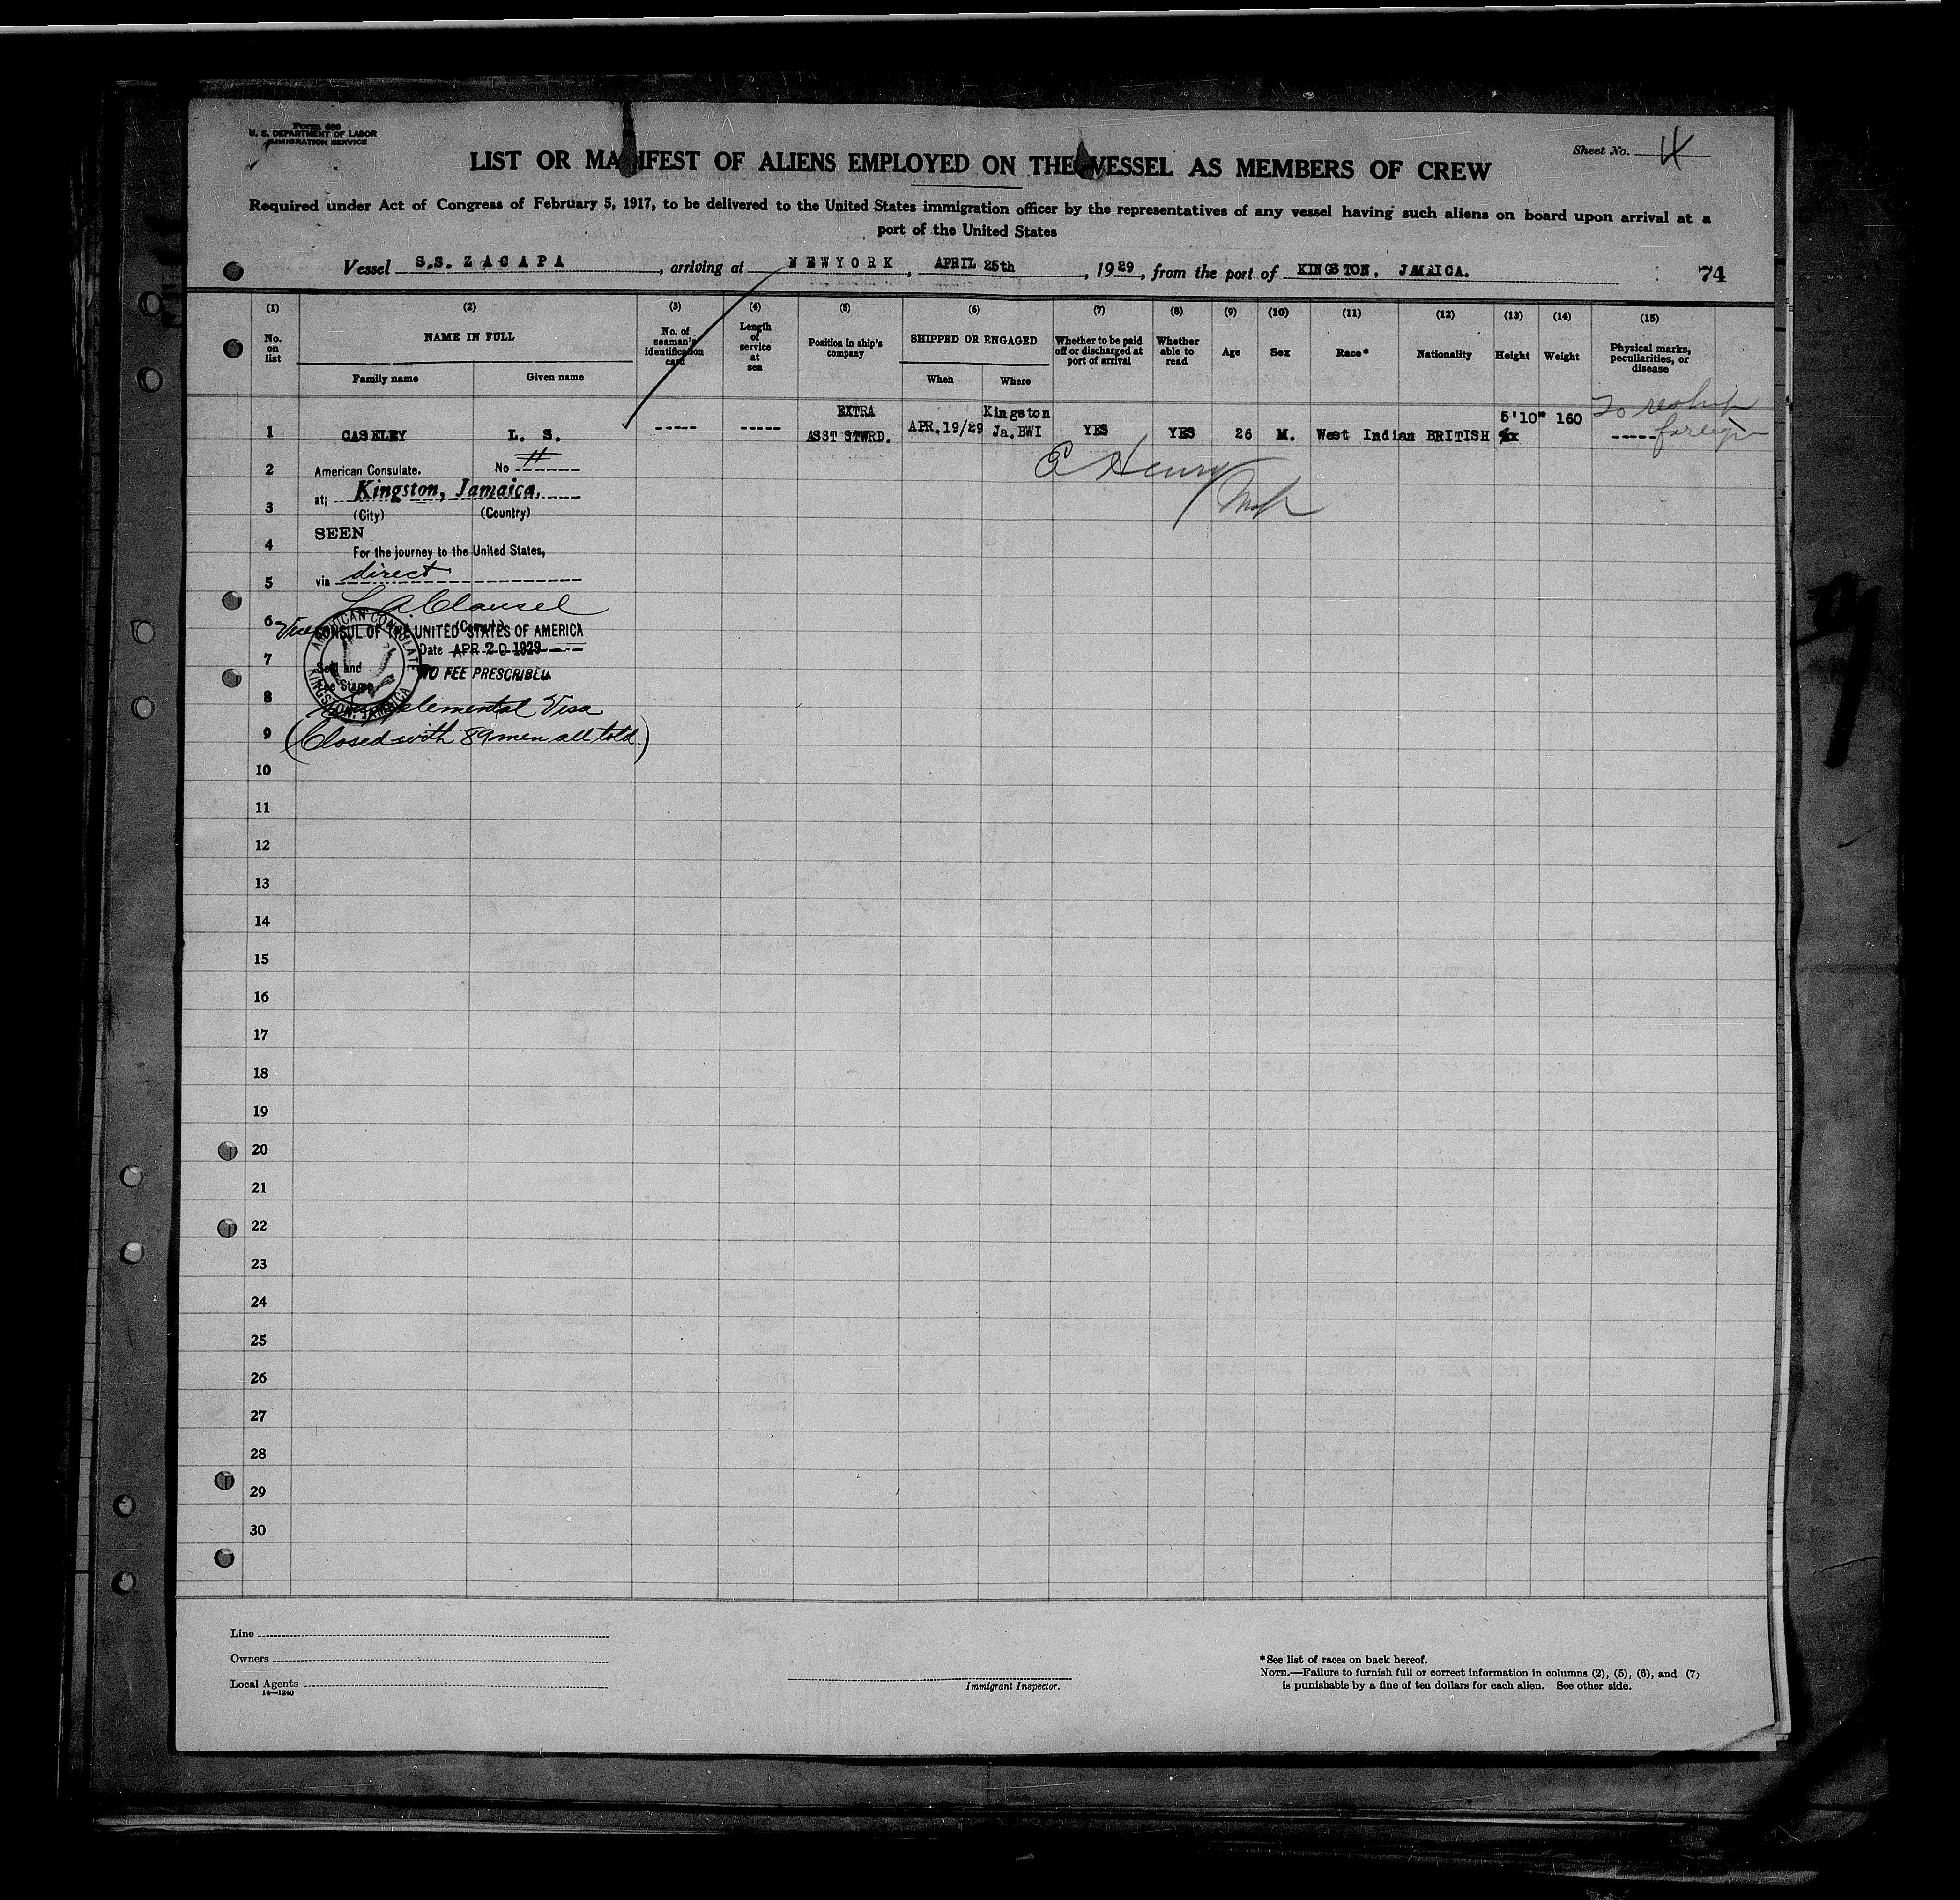 Form 680
U. S. DEPARTMENT OF LABOR
IMMIGRATION SERVICE
Sheet No. 4
LIST OR MANIFEST OF ALIENS EMPLOYED ON THE VESSEL AS MEMBERS OF CREW
Required under Act of Congress of February 5, 1917, to be delivered to the United States immigration officer by the representatives of any vessel having such aliens on board upon arrival at a
port of the United States
Vessel S.S. ZACAPA, arriving at NEWYORK, APRIL 25th, 1929, from the port of KINGSTON, JAMAICA. 74
(1) (2) (3) (4) (5) (6) (7) (8) (9) (10) (11) (12) (13) (14) (15)
No. on list
NAME IN FULL
Family name Given name
No. of seaman's identification card
Length of service at sea
Position in ship's company
SHIPPED OR ENGAGED
When Where
Whether to be paid off or discharged at port of arrival
Whether able to read
Age
Sex
Race*
Nationality
Height
Weight
Physical marks, peculiarities, or disease
To reship foreign
1 CASELEY L. S. ----- ----- EXTRA ASST STWRD. APR.19/29 Kingston Ja.BWI YES YES 26 M. West Indian BRITISH 5'10" 160 -----
2 American Consulate. No
3 at; Kingston, Jamaica.
(City) (Country)
SEEN
4 For the journey to the United States,
5 via direct
6 Vice CONSUL OF THE UNITED STATES OF AMERICA
(Consul)
AMERICAN CONSULATE
KINGSTON, JAMAICA
7 Date APR 20 1929
Seal and
Fee Stamp
NO FEE PRESCRIBED
8 Supplemental Visa
9 (Closed with 89 men all told.)
E Henry
10
11
12
13
14
15
16
17
18
19
20
21
22
23
24
25
26
27
28
29
30
Line
Owners
Local Agents
14—1240
Immigrant Inspector.
*See list of races on back hereof.
NOTE.—Failure to furnish full or correct information in columns (2), (5), (6), and (7)
is punishable by a fine of ten dollars for each alien. See other side.